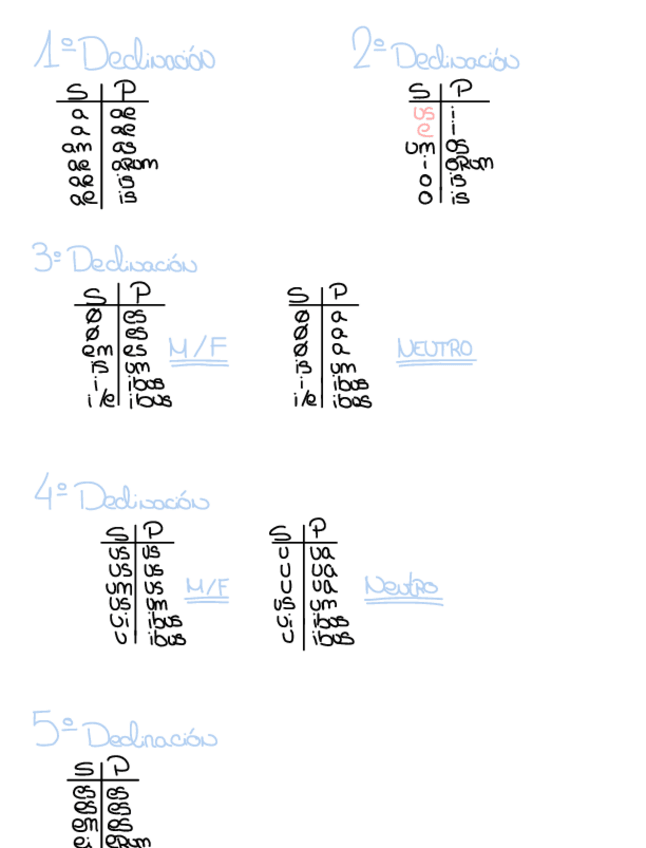 1ª Declinación
S P
a ae
a ae
am as
ae arum
ae is
a is
2ª Declinación
S P
us i
e i
um os
i orum
o is
o is
3ª Declinación
S P
Ø es
Ø es
em es
is um
i ibus
i/e ibus
M/F
S P
Ø a
Ø a
Ø a
is um
i ibus
i/e ibus
NEUTRO
4ª Declinación
S P
us us
us us
um us
us um
ui ibus
u ibus
M/F
S P
u ua
u ua
u ua
us um
ui ibus
u ibus
Neutro
5ª Declinación
S P
es es
es es
em es
ei erum